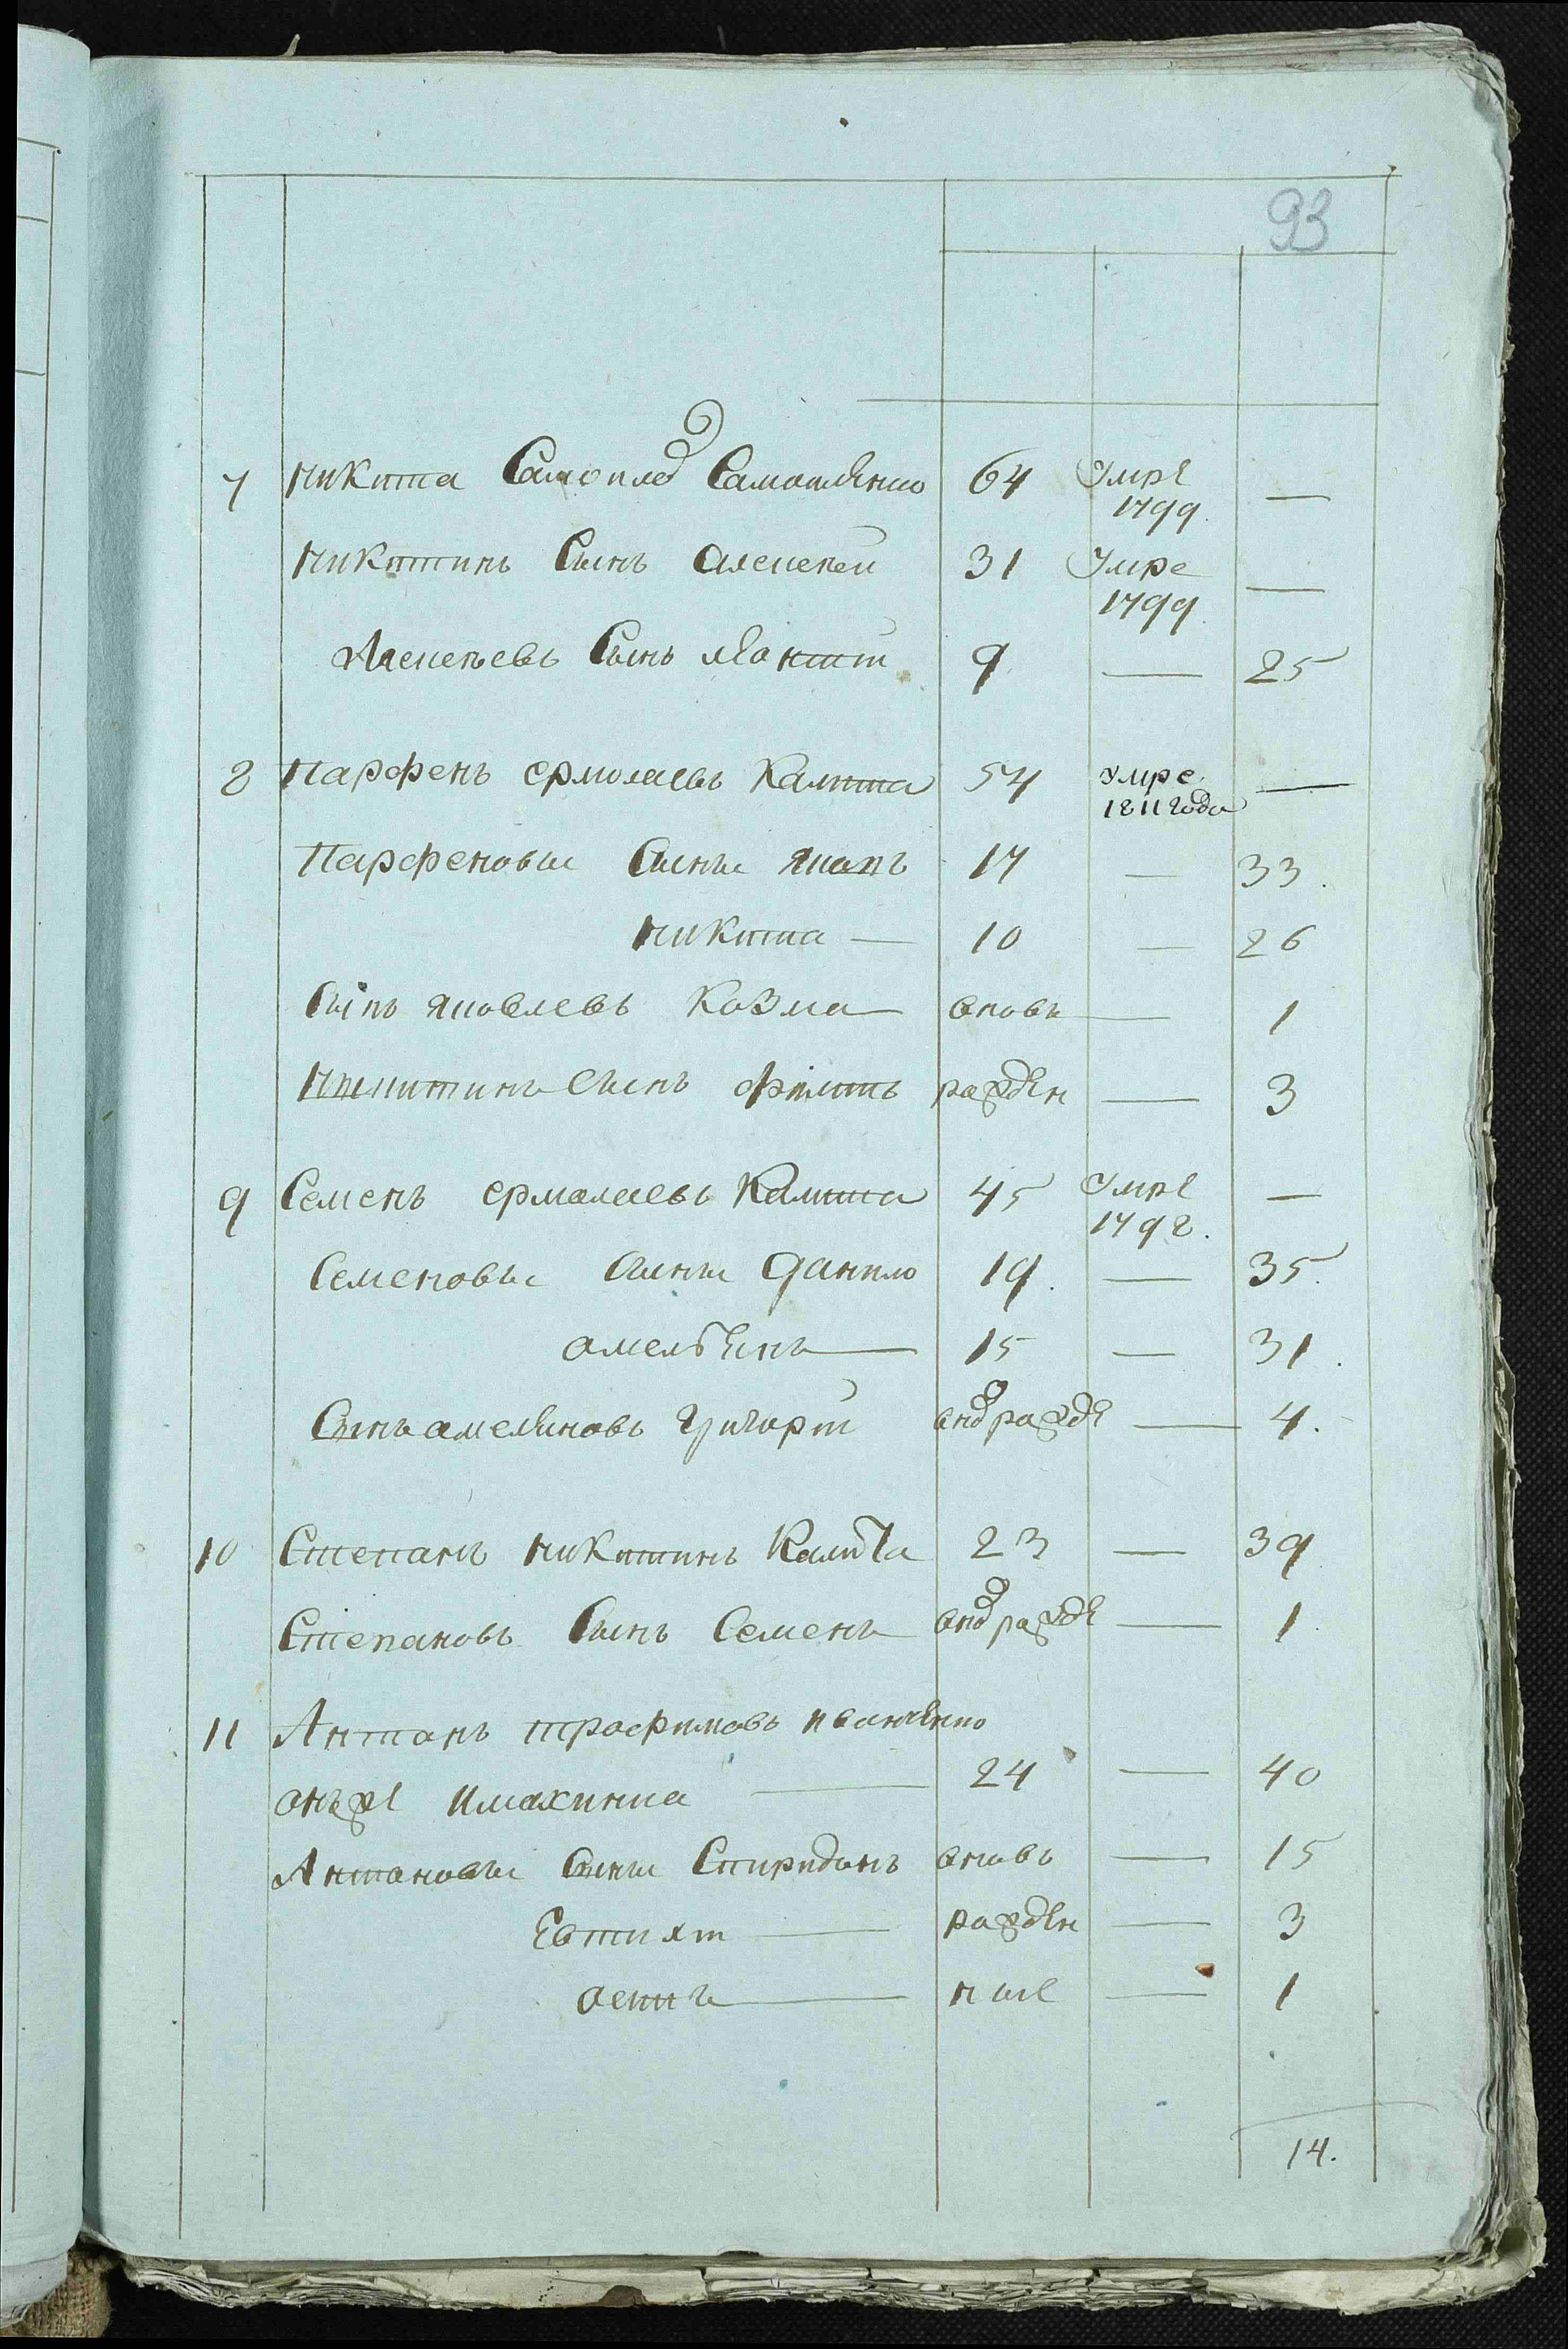 93
7 никита Самойлов Самотленко 64 Умре 1799 —
никитинъ Сынъ алексей 31 Умре 1799 —
Алексеевъ Сынъ леонтий 9 — 25
8 Парфенъ ермолаевъ Калита 54 умре 1811 года —
Парфеновы Сыны яковъ 17 — 33.
никита — 10 — 26
Сынъ яковлевъ козма вновь — 1
никитинъ Сынъ филипъ рожден — 3
9 Семенъ ермалаевъ Калита 45 Умре 1798. —
Семеновы Сыны данило 19. — 35.
амельянъ — 15 — 31.
Сынъ амеляновъ григорий внов рожде — 4.
10 Степанъ никитинъ Калита 23 — 39
Степановъ Сынъ Семенъ внов рожде — 1.
11 Антанъ трофимовъ иванченко
онъже 24 — 40
Антановы Сыны Спиридонъ вновь — 15
Евтихий — рожден — 3
осипъ — ные — 1
14.